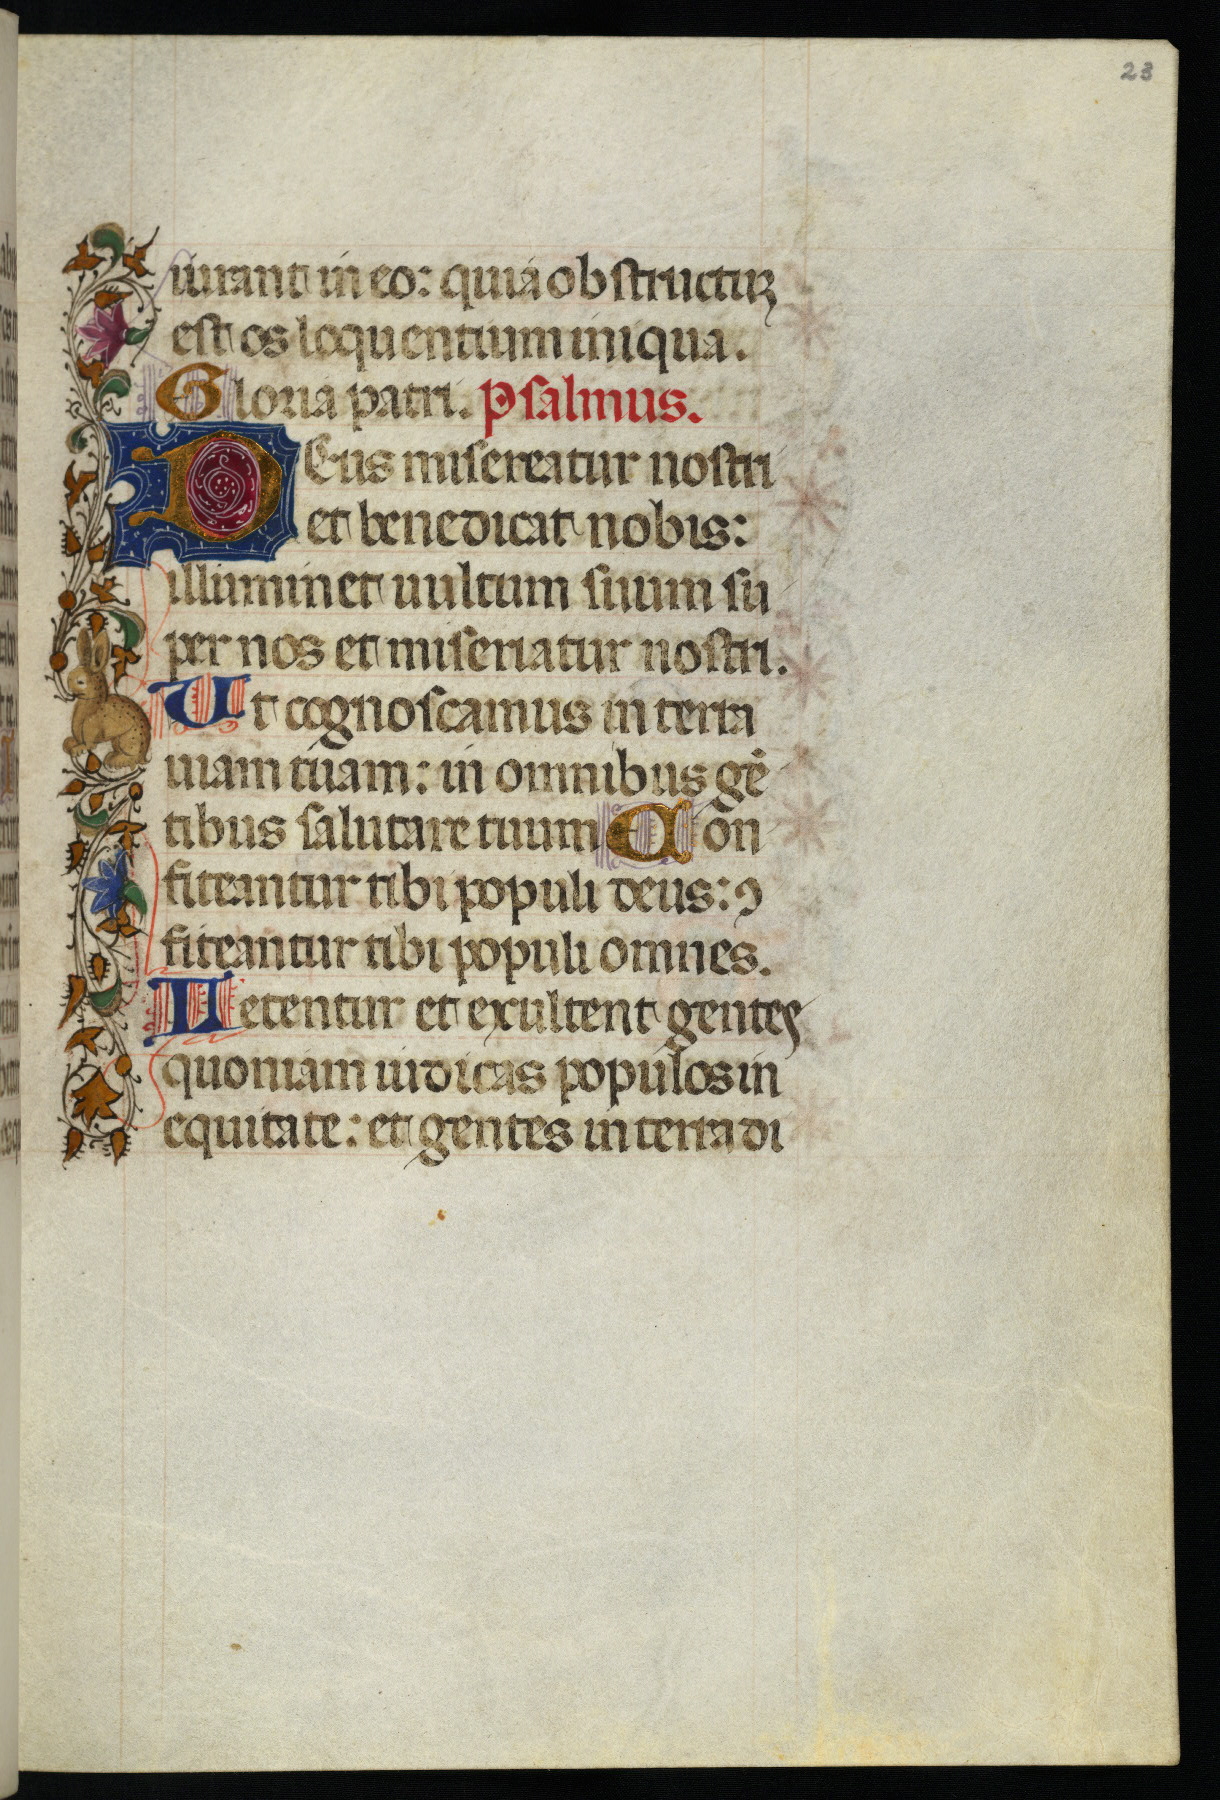 23
iurant in eo: quia obstructuꝫ
est os loquentium iniqua.
Gloria patri. Psalmus.
DEus misereatur nostri
et benedicat nobis:
illuminet uultum suum su
per nos et miseriatur nostri.
Ut cognoscamus in terra
uiam tuam: in omnibus gē
tibus salutare tuum Con
fiteantur tibi populi deus: ꝯ
fiteantur tibi populi omnes.
Letentur et exultent gentes
quoniam iudicas populos in
equitate: et gentes in terra di